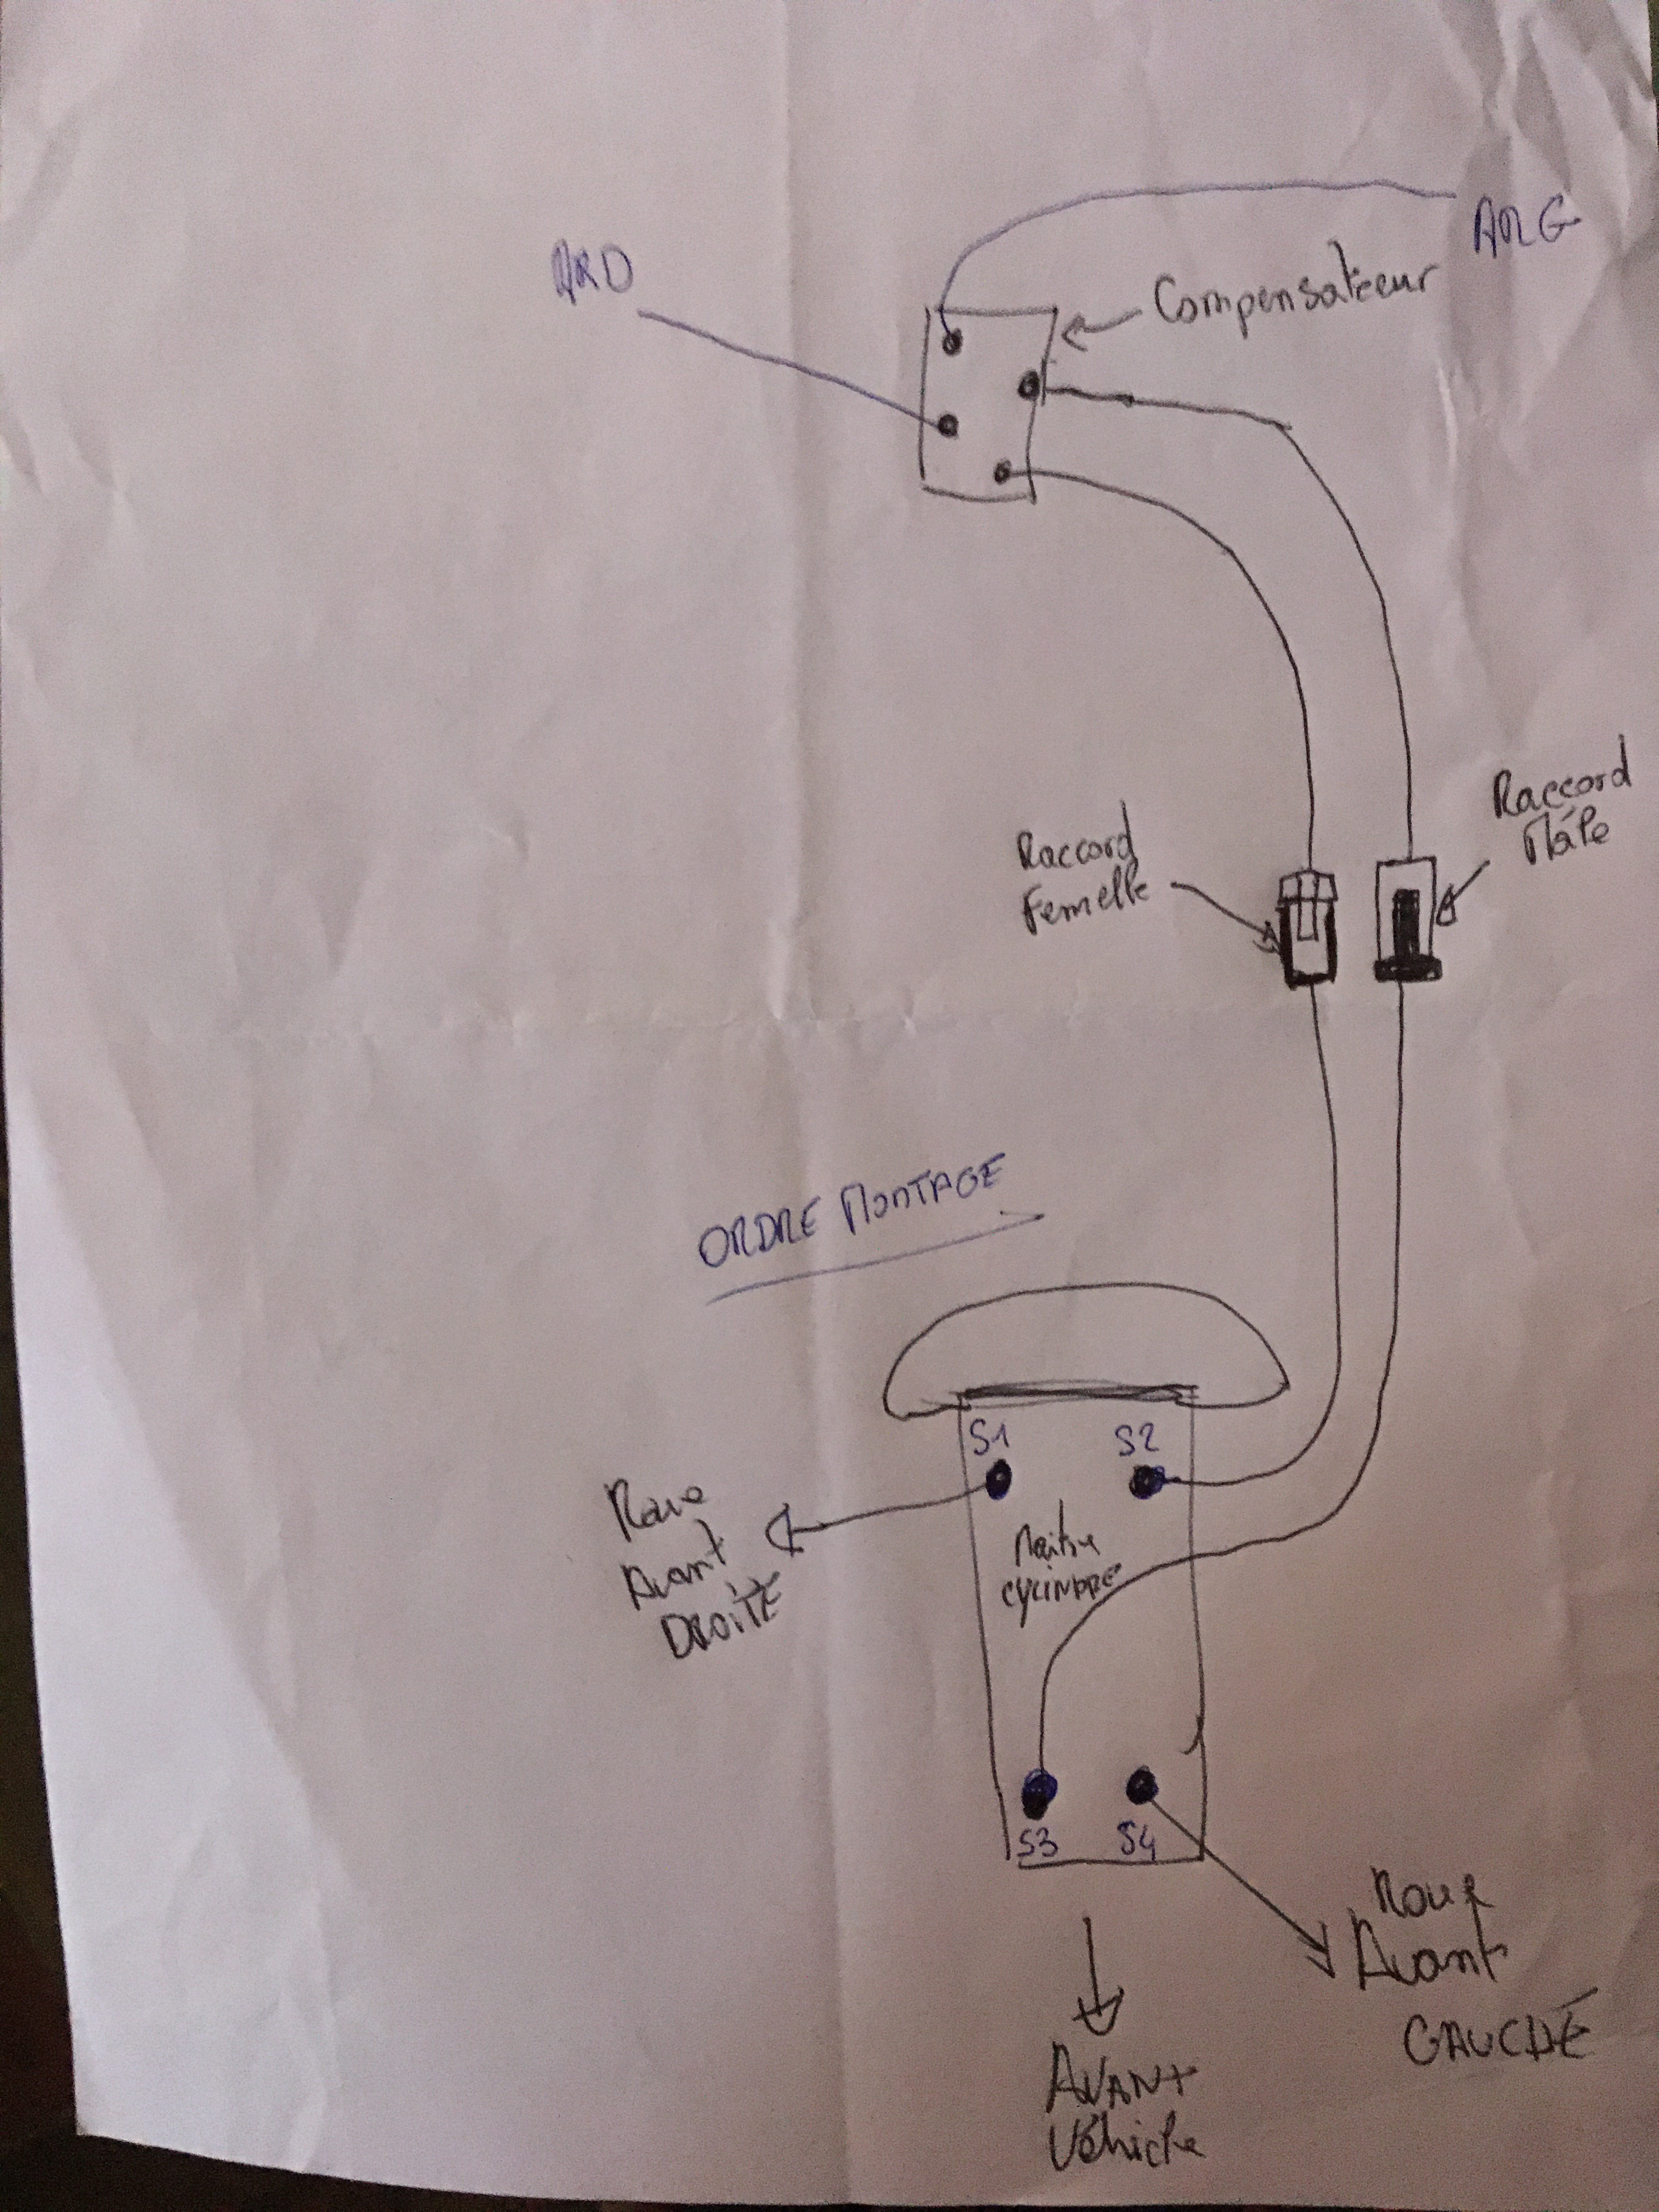 ARG
ARD
Compensateur
Raccord
Mâle
Raccord
Femelle
ORDRE MONTAGE
S1 S2
Roue
Avant
DROITE
Maitre
CYLINDRE
S3 S4
Roue
Avant
GAUCHE
AVANT
Véhicle